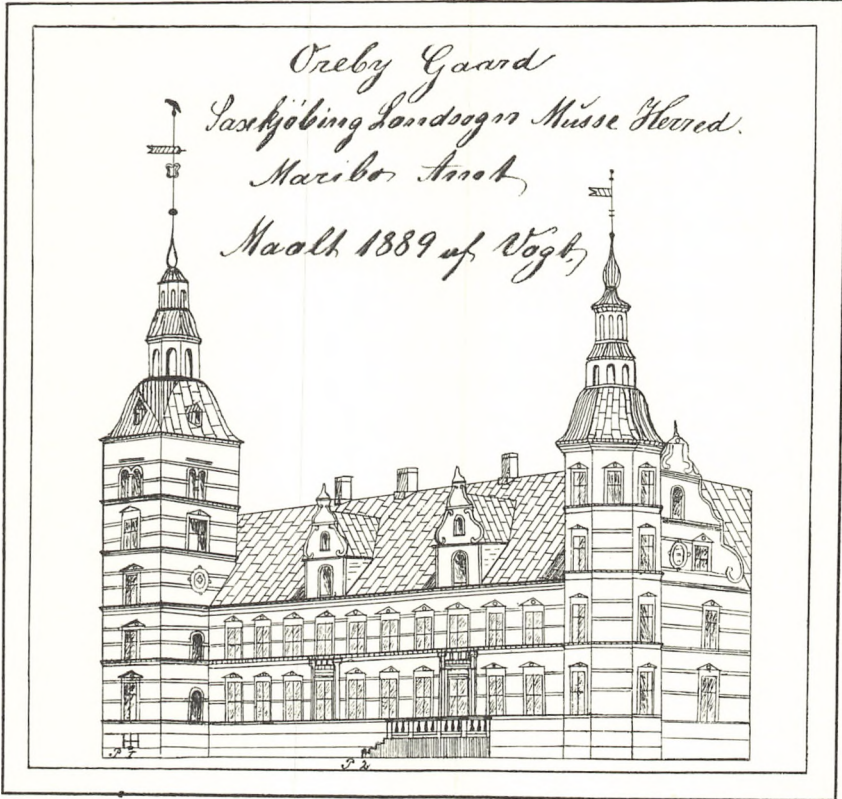 Oreby Gaard
Saxkjøbing Landsogn Musse Herred.
Maribo Amt
Maalt 1889 af Vogt,
P 1
P 2